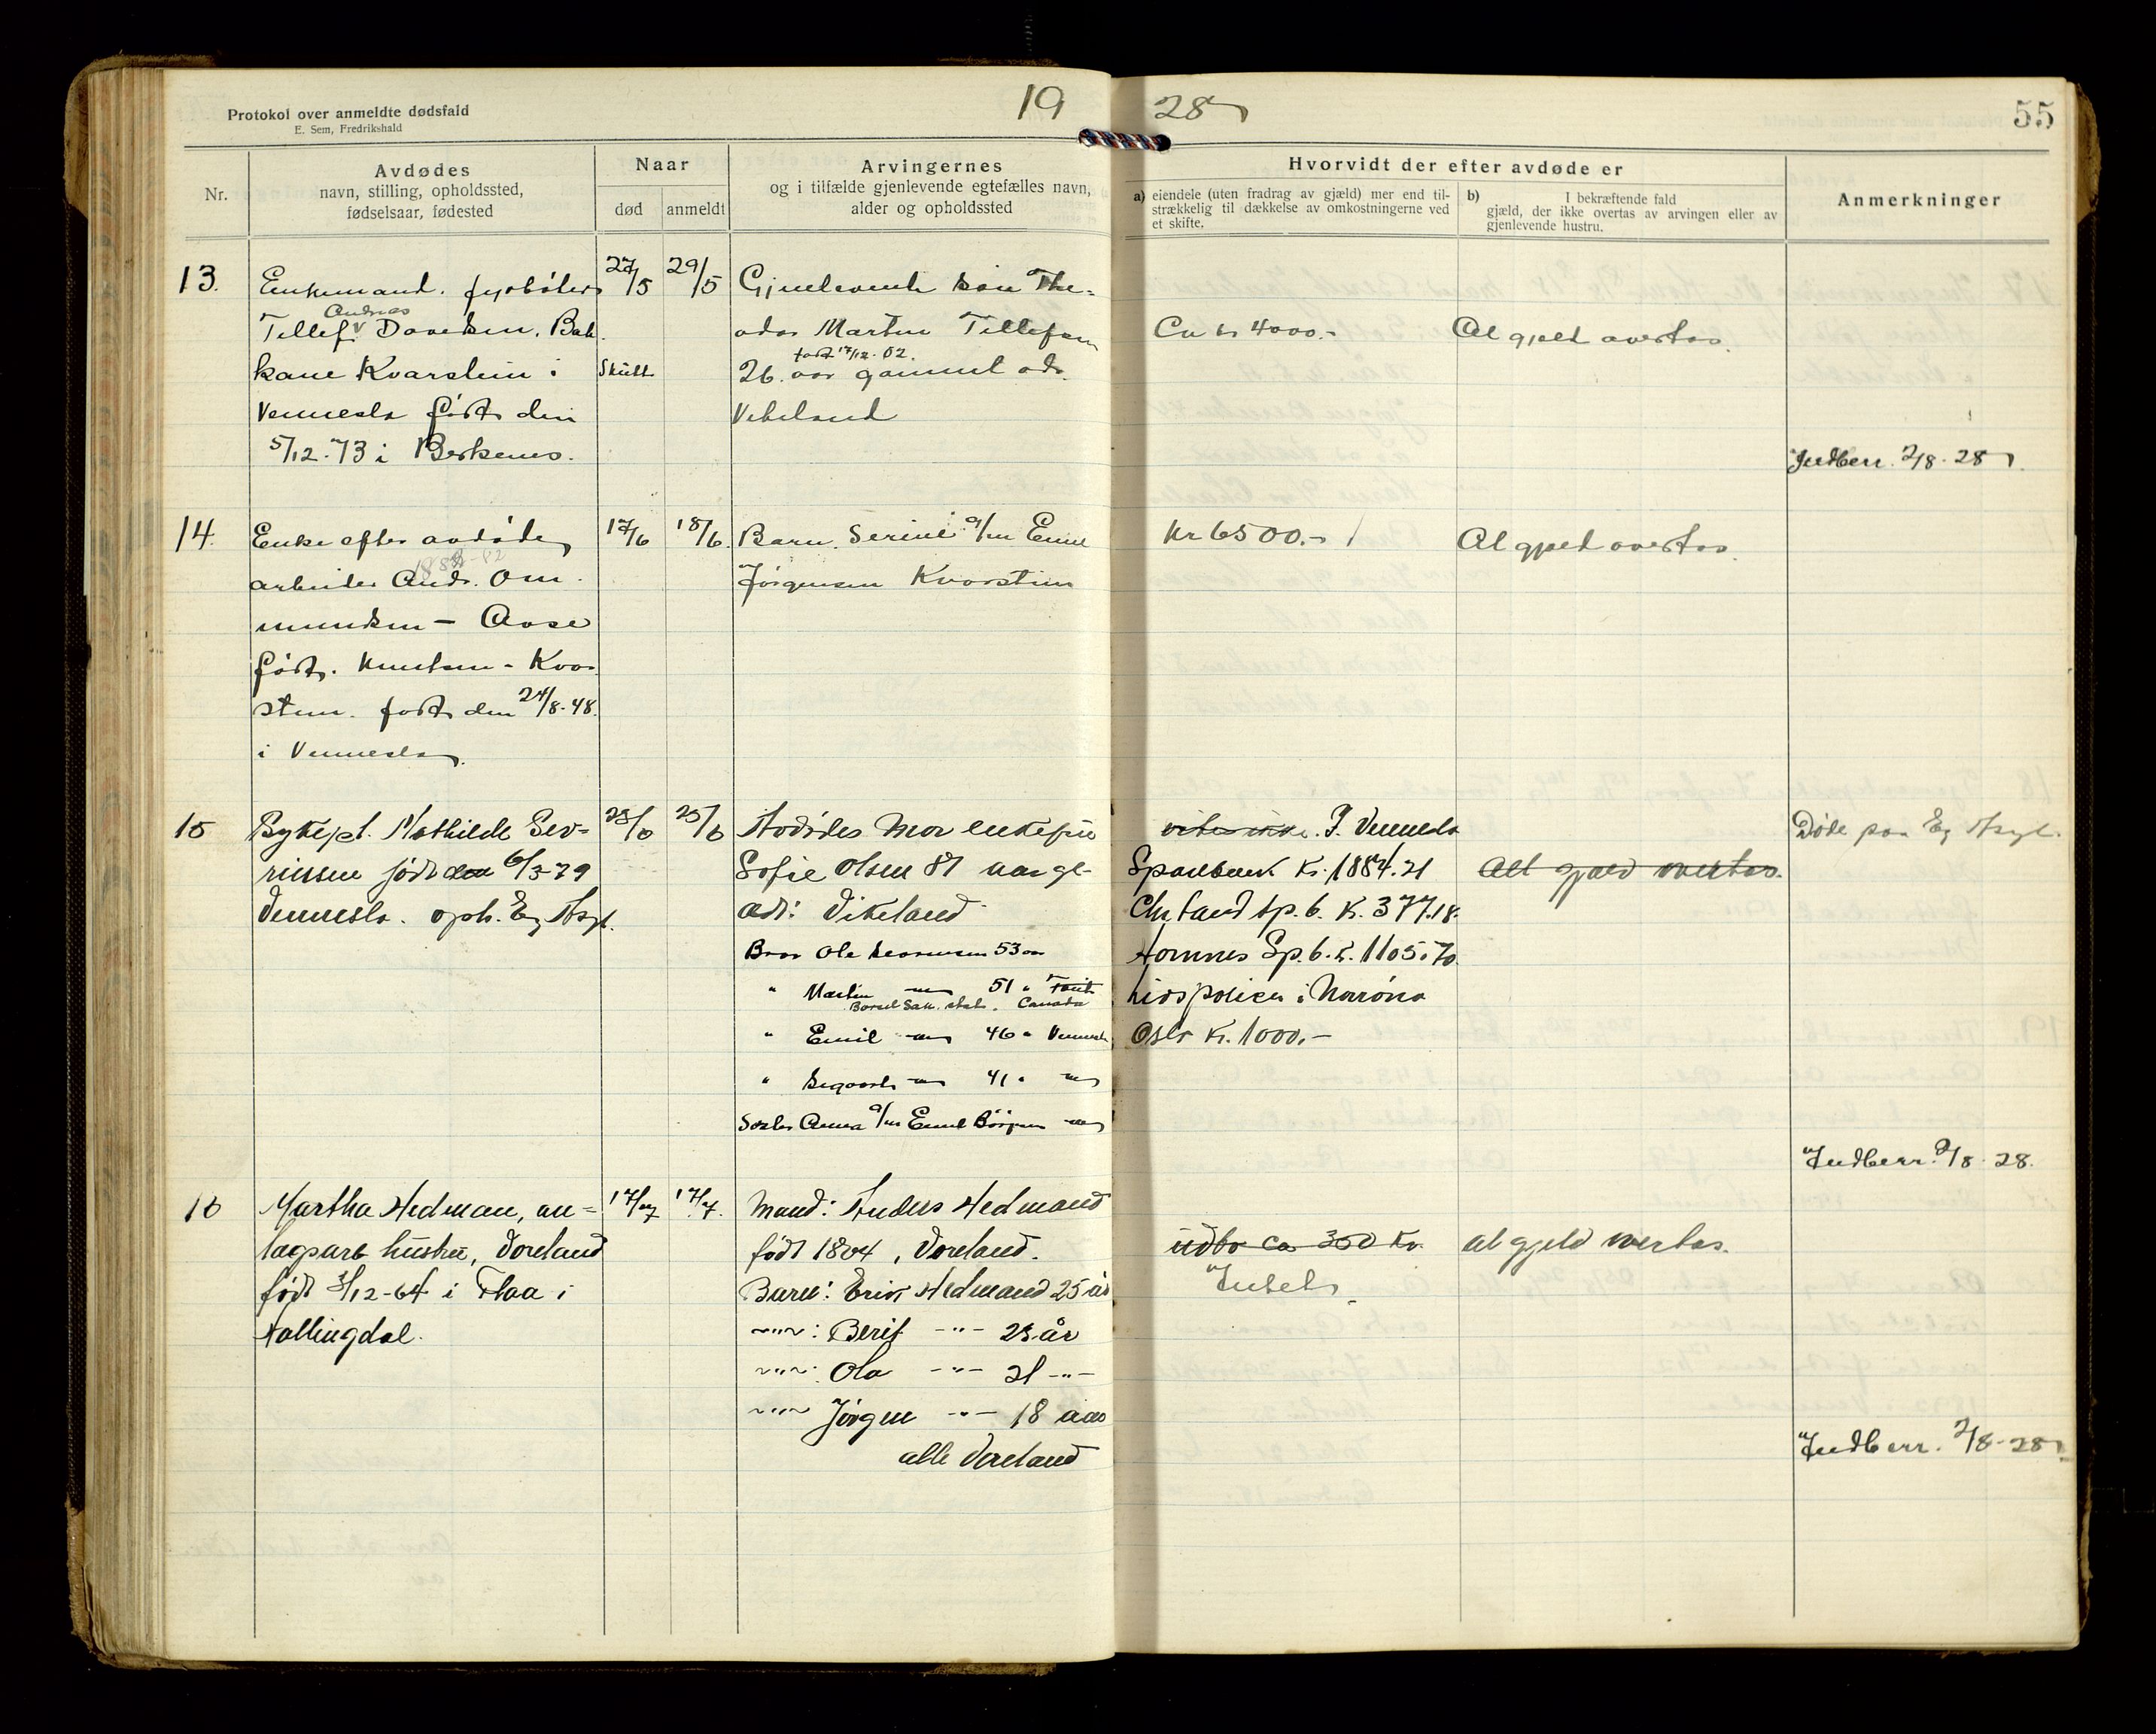 Protokol over anmeldte dødsfald
E. Sem, Fredrikshald
19
28
55
Nr.
Avdødes
navn, stilling, opholdssted,
fødselsaar, fødested
Naar
død
anmeldt
Arvingernes
og i tilfælde gjenlevende egtefælles navn,
alder og opholdssted
Hvorvidt der efter avdøde er
a) eiendele (uten fradrag av gjæld) mer end til-
strækkelig til dækkelse av omkostningerne ved
et skifte.
b) I bekræftende fald
gjæld, der ikke overtas av arvingen eller av
gjenlevende hustru.
Anmerkninger
13.
Enkemand. fyrbøter
Andreas
Tellef Davidsen, Bak
kane Kvarstein i
Vennesla født den
5/12-73 i Berkenes.
27/5
Skutt
29/5
Gjenlevende søn The=
odor Martin Tellefsen
født 17/12-02.
26 aar gammel adr.
Vikeland
Ca kr 4000.-
Al gjeld overtas.
Indberr. 2/8-28
14.
Enke efter avdøde
arbeider Andr. Om
mundsen - Aase
født. Knutsen - Kvar
stein. født den 24/8-48.
i Vennesla
17/6
18/6
Barn. Serine g/m Emil
Jørgensen Kvarstein
Kr 6500.-
Al gjeld overtas.
15
Sykepl. Mathilde Sev=
rinsen født den 6/3-79
Vennesla. oph. Eg Asyl.
25/6
Avdødes Mor enkefru
Sofie Olsen 81 aar gl-
adr: Vikeland
Bror Ole Severinsen 53 aar
" Martin -"- 51 "
Canada
" Emil -"- 46 " Vennesla
" Sigvart -"- 41 " -"-
Søster Anna g/m Emil -"-
I Vennesla
Sparebank Kr. 1884.21
Chr.sand sp.b. K. 377.18.
Homnes Sp.b. K. 1105.70
Livspolice i Norrøna
Oslo Kr. 1000.-
Alt gjæld overtas.
Døde paa Eg Asyl.
Indberr. 2/8-28.
16
Martha Hedman, an=
lægsarb hustru, Voreland
født 3/12-64 i Flaa i
Hallingdal.
17/7
17/7.
Mand: Anders Hedmand
født 1864, Voreland.
Barn: Erik Hedmand 25 år
-"-: Berit -"- 23 år
-"-: Ola -"- 21 -"-
-"- Jørgen -"- 18 aar
alle Voreland
indbo ca 300 Kr.
Intet
al gjeld overtas.
Indberr. 2/8-28